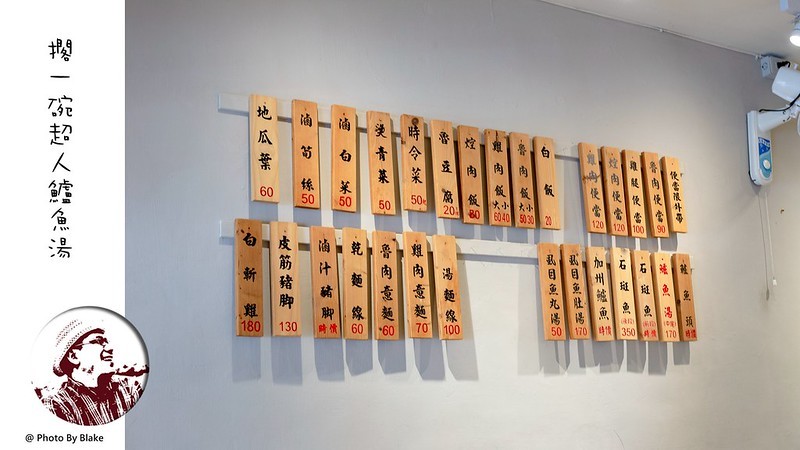 擱一碗超人鱸魚湯
地瓜葉 60
滷筍絲 50
滷白菜 50
燙青菜 50
時令菜 50
魯豆腐 20
焢肉飯 80
雞肉飯 大60 小40
魯肉飯 大50 小30
白飯 20
雞肉便當 120
焢肉便當 120
雞腿便當 100
魯肉便當 90
便當限外帶
白斬雞 180
皮筋豬腳 130
滷汁豬腳 時價
乾麵線 60
魯肉意麵 60
雞肉意麵 70
湯麵線 100
虱目魚丸湯 50
虱目魚肚湯 170
加州鱸魚 時價
石斑魚 350
石斑魚 時價
鱸魚湯(中段) 170
鮭魚頭 時價
@ Photo By Blake